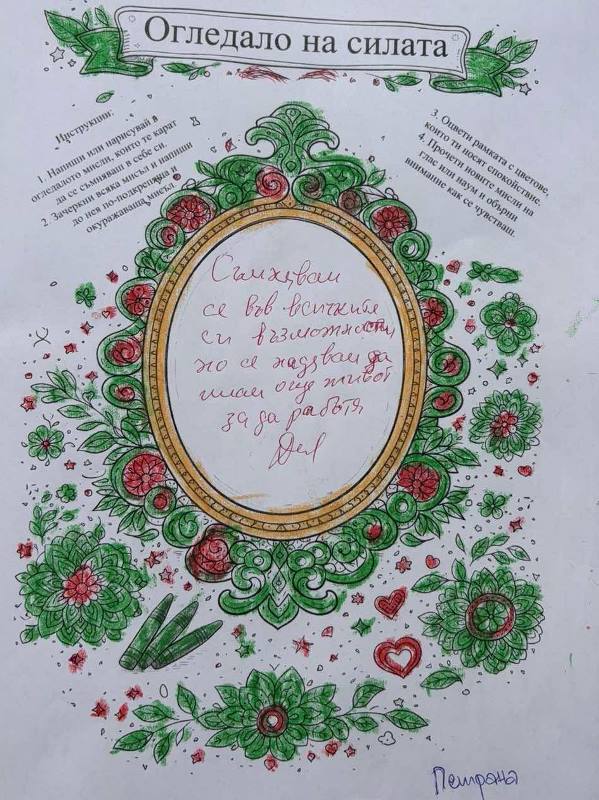 Огледало на силата
Инструкции:
1. Напиши или нарисувай в
огледалото мисли, които те карат
да се съмняваш в себе си.
2. Зачеркни всяка мисъл и напиши
до нея по-подкрепяща и
окуражаваща мисъл.
3. Оцвети рамката с цветове,
които ти носят спокойствие.
4. Прочети новите мисли на
глас или наум и обърни
внимание как се чувстваш.
се във всичките
си възможности
но се надявам да
имам още живот
за да работя
Петрана